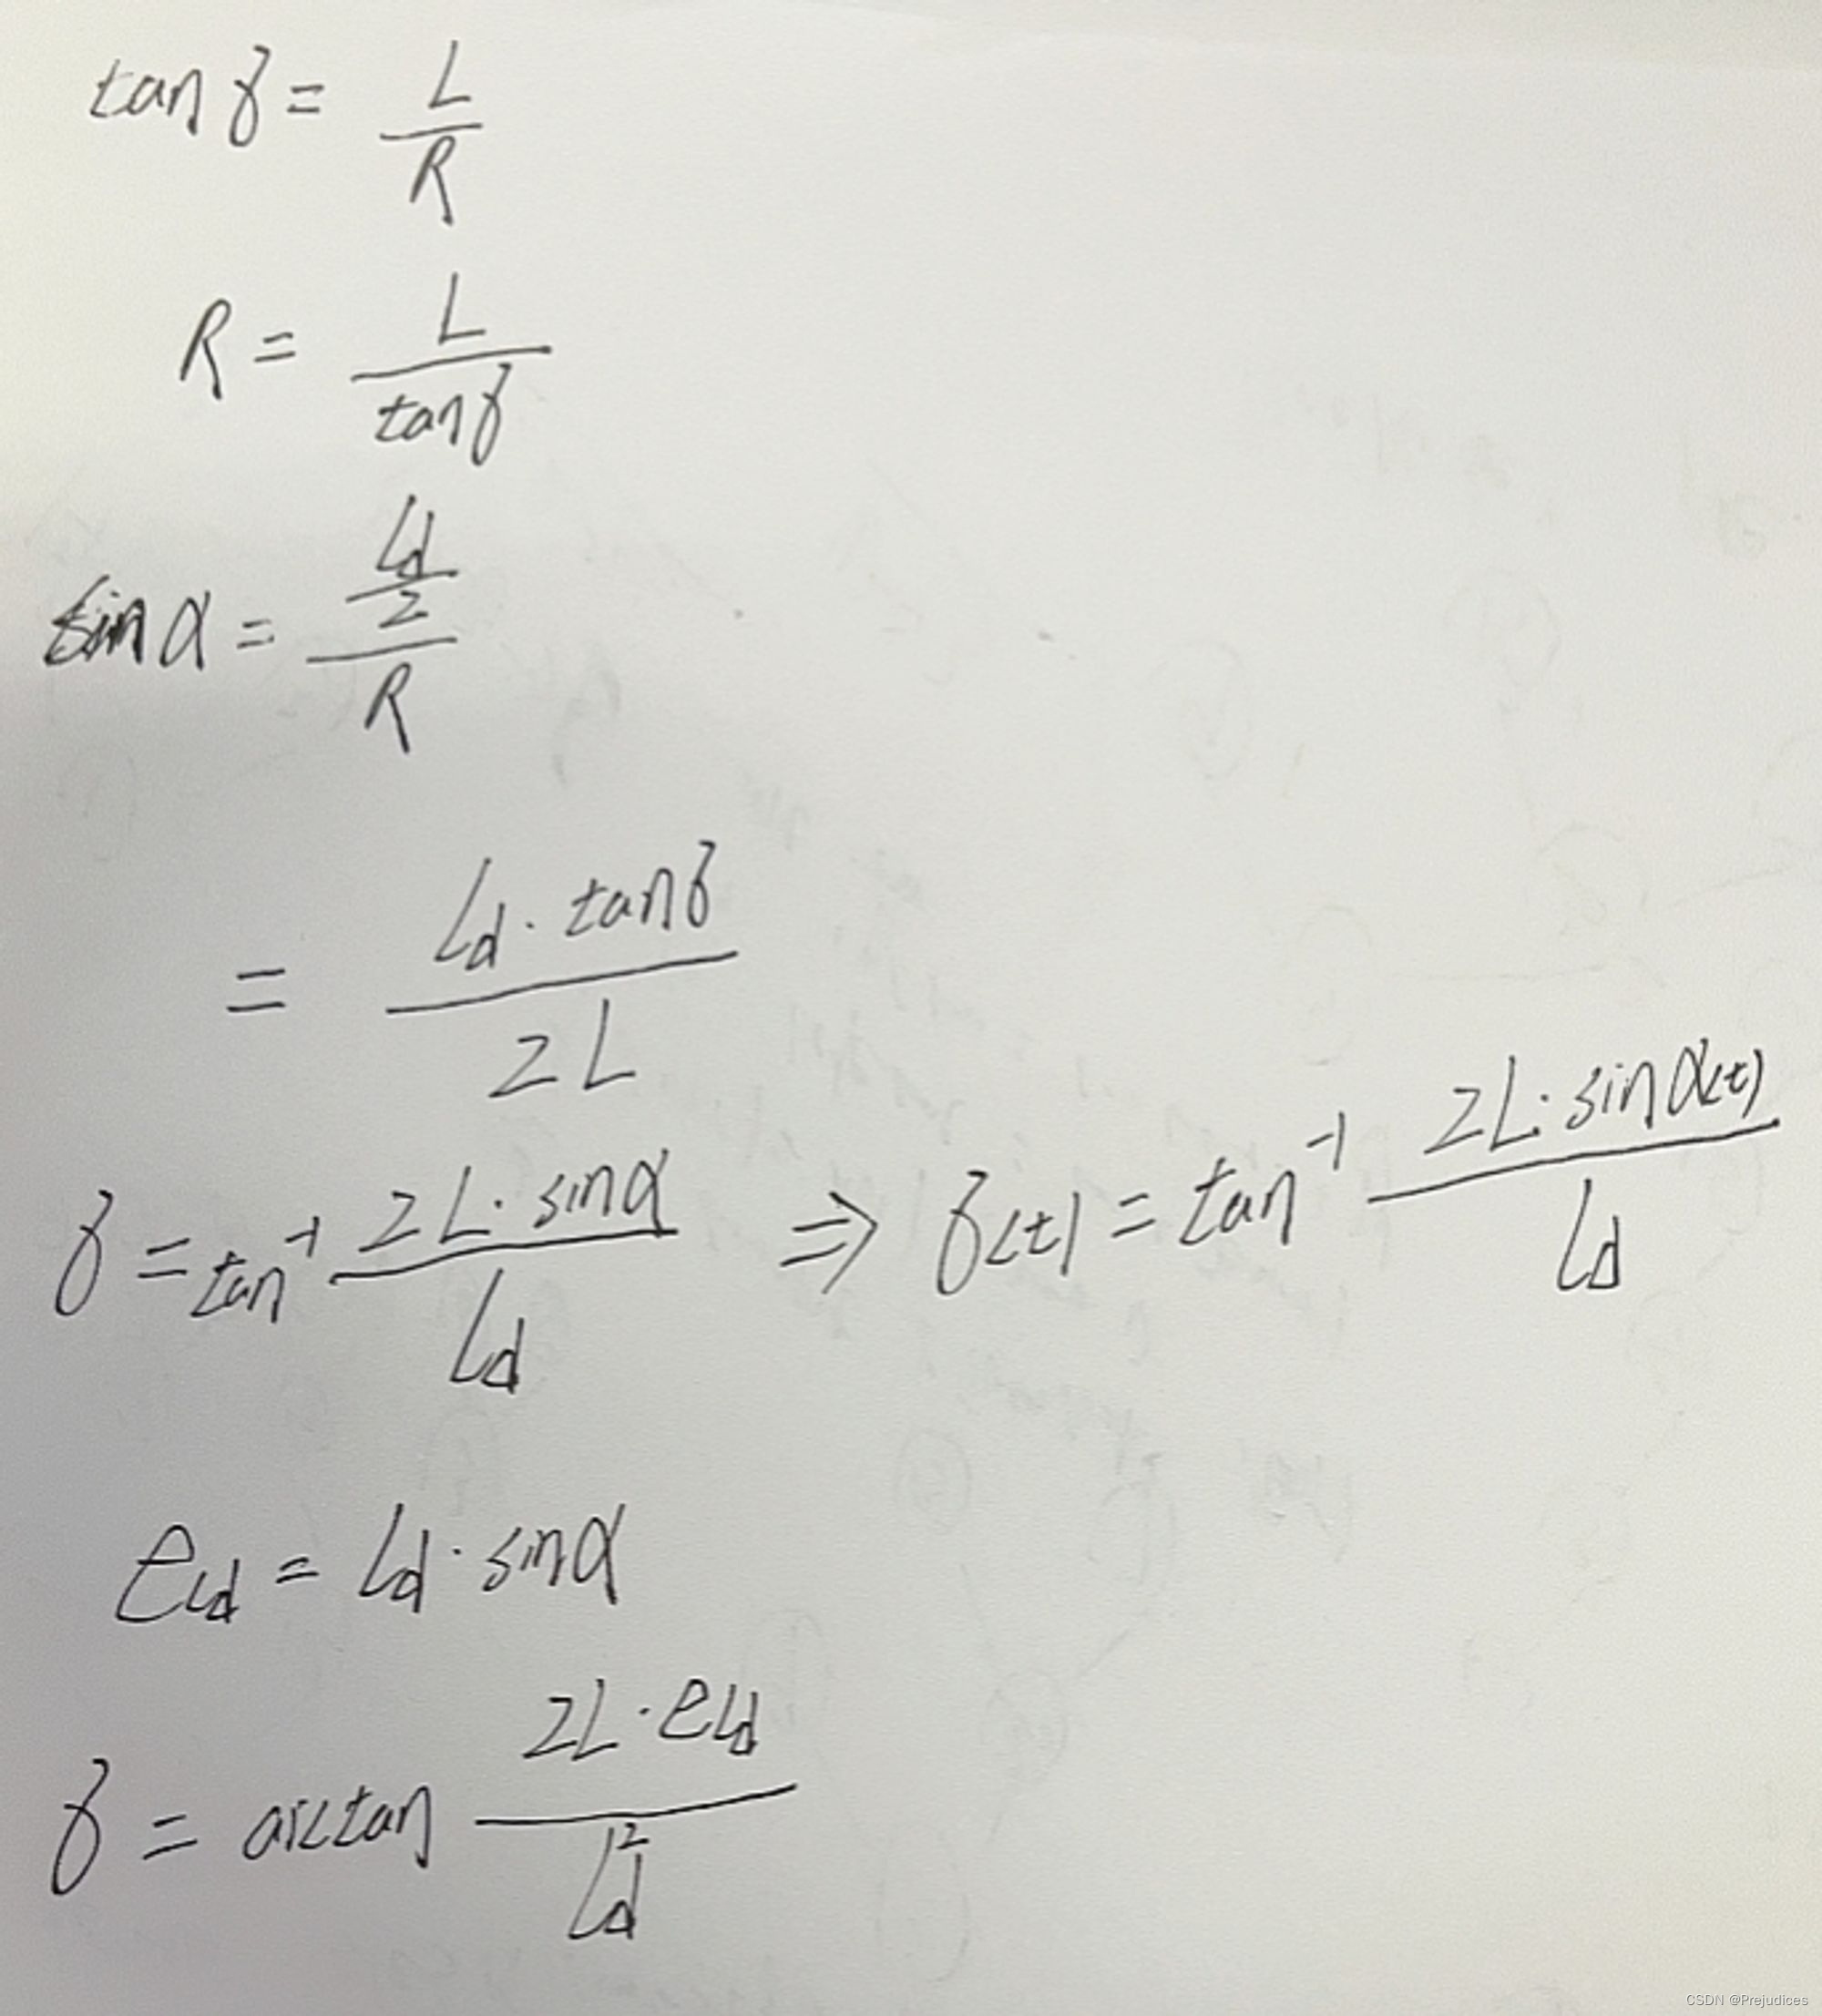 tan δ = L / R
R = L / tan δ
sin α = (Ld / 2) / R
= Ld · tan δ / 2L
δ = tan⁻¹ 2L · sin α / Ld ⇒ δ(t) = tan⁻¹ 2L · sin α(t) / Ld
eLd = Ld · sin α
δ = arctan 2L · eLd / Ld²
CSDN @Prejudices